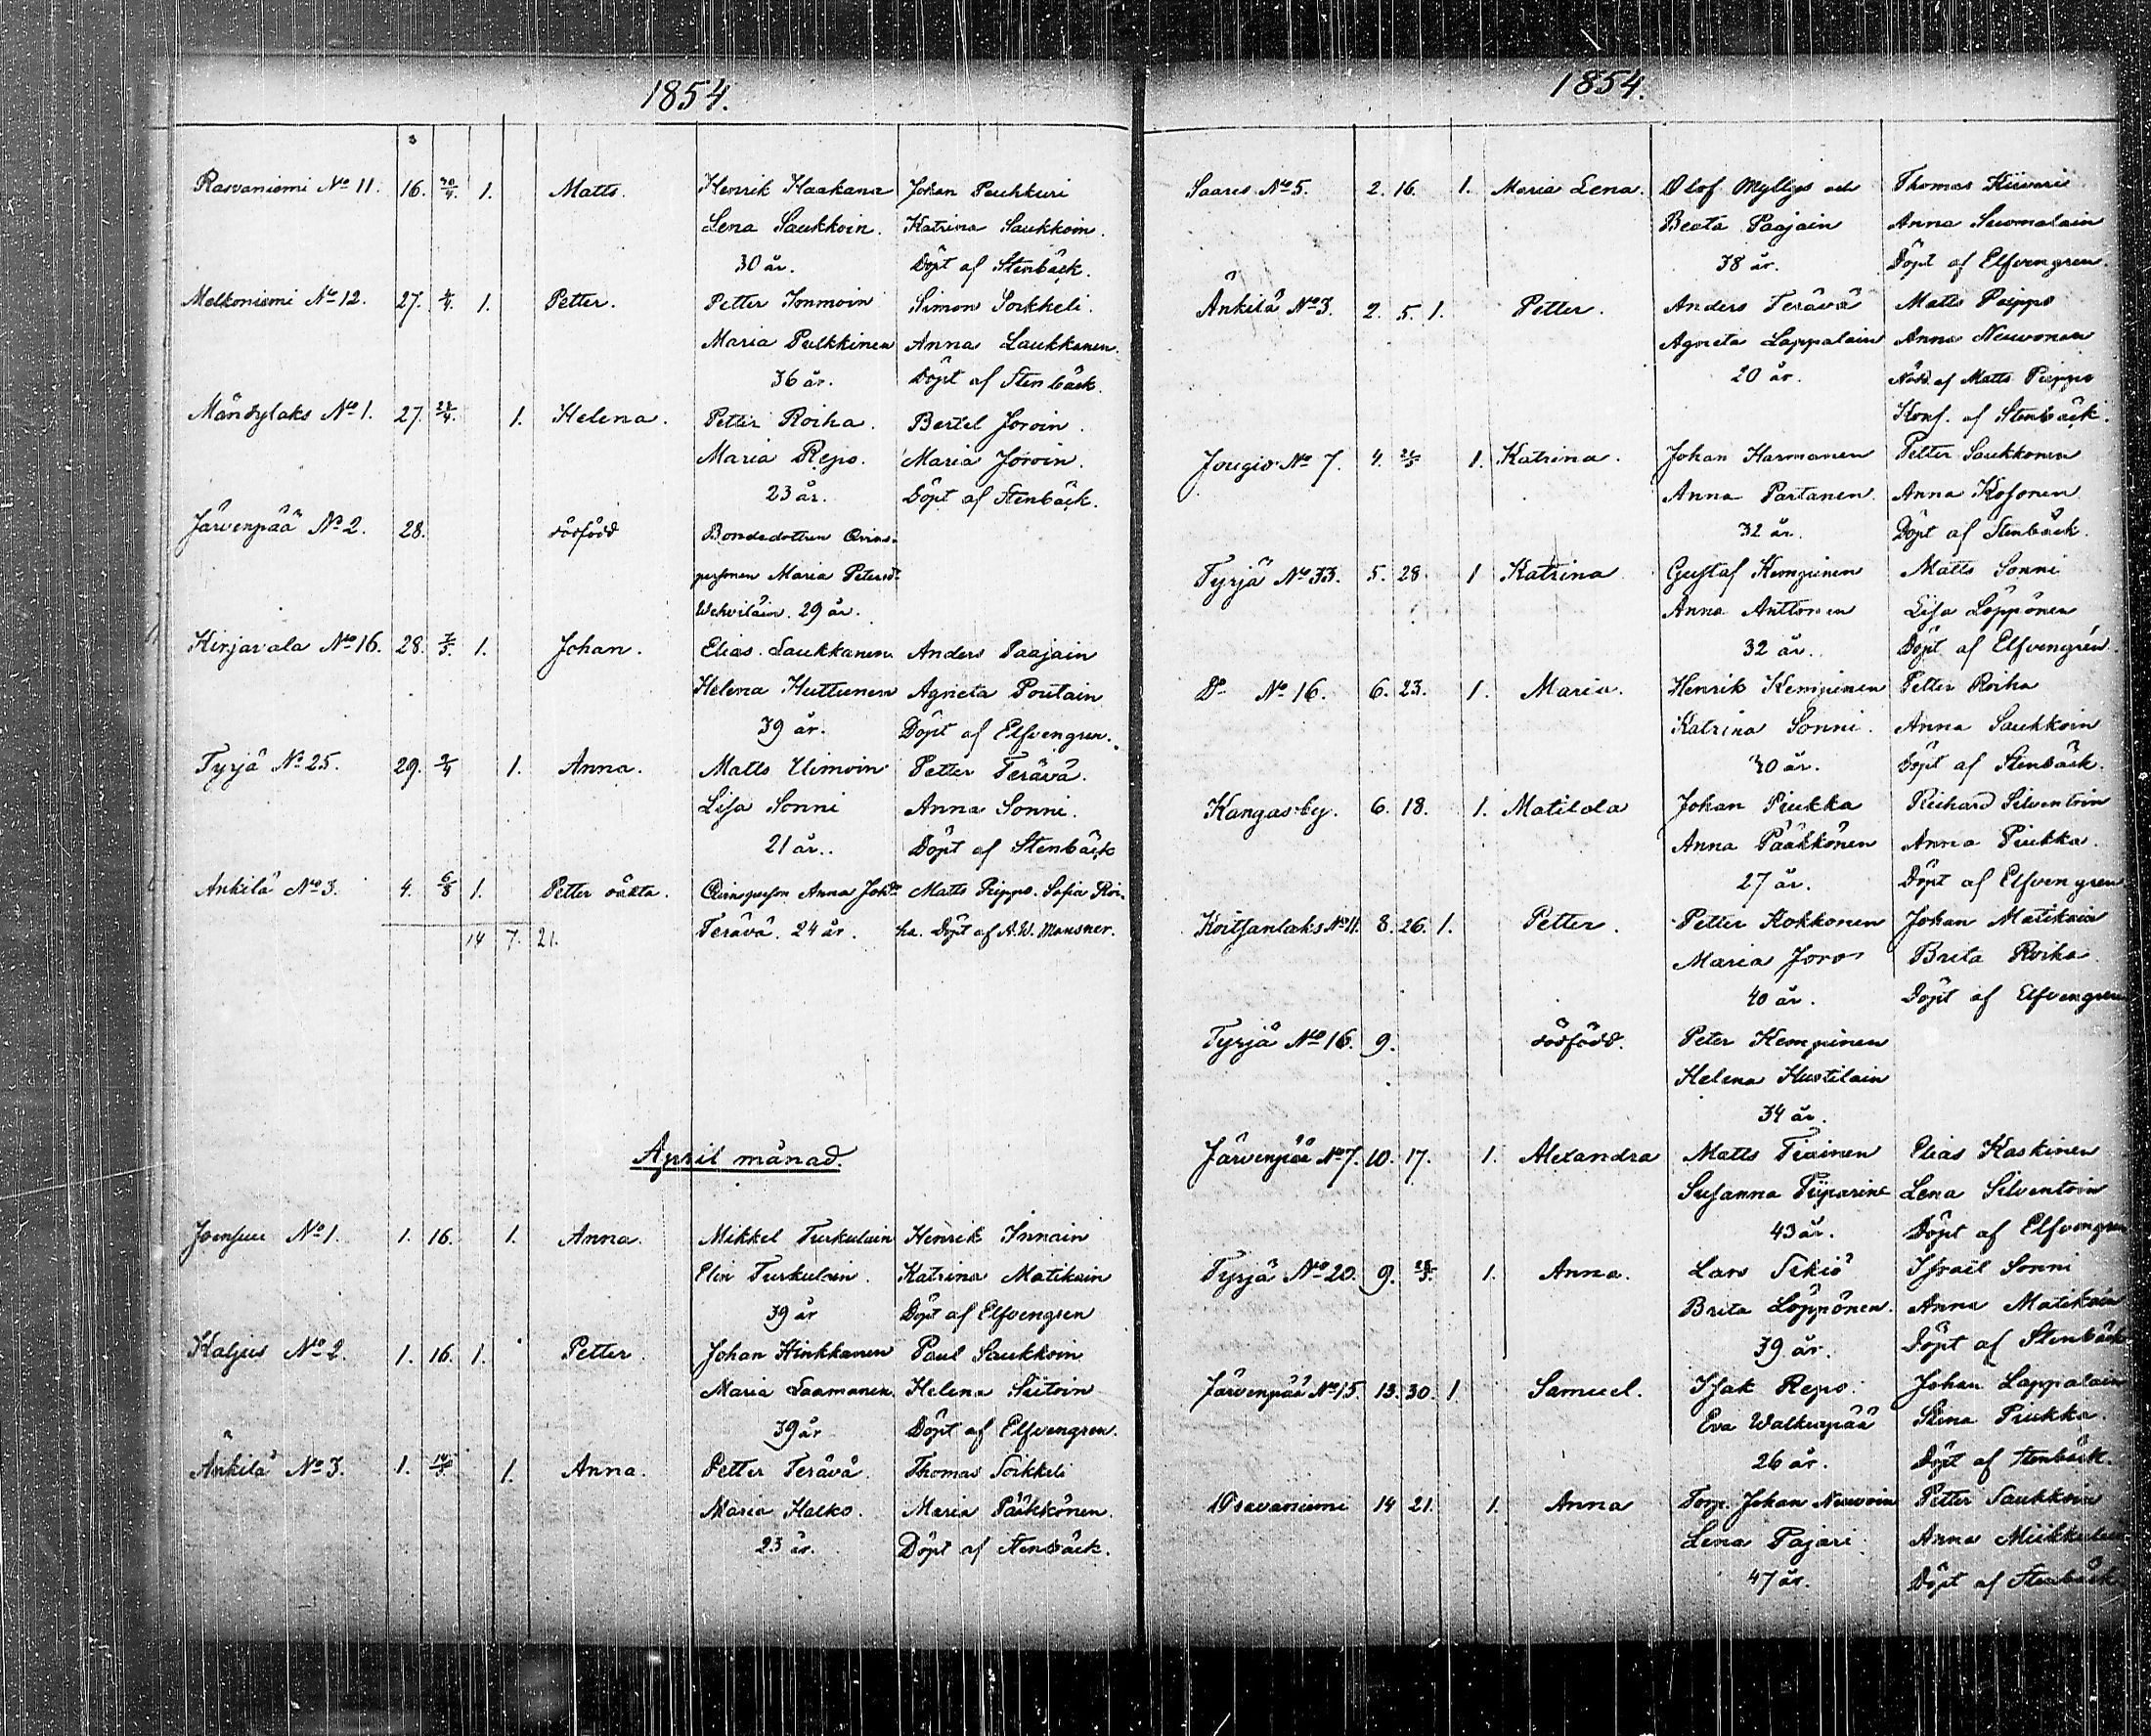 1854.
Rasvaniemi No 11. 16. 30/4. 1. Matts. Henrik Haakana Johan Peuhkuri
Lena Saukkoin. Katrina Saukkoin.
30 år. Döpt af Stenbäck.
Melkoniemi No 12. 27. 1. Petter. Petter Immoin Simon Soikkeli.
Maria Pulkkinen Anna Laukkanen.
36 år. Döpt af Stenbäck.
Mändylaks No 1. 27. 23/4. 1. Helena. Petter Roiha. Bertel Joroin.
Maria Repo. Maria Joroin.
23 år. Döpt af Stenbäck.
Järvenpää No 2. 28. dödfödd Bondedottren Qvins-
personen Maria Petersd.
Wehviläin. 29 år.
Kirjavala No 16. 28. 7/5. 1. Johan. Elias Laukkanen Anders Paajain
Helena Huttunen Agneta Poutain
39 år. Döpt af Elfvengren.
Tyrjä No 25. 29. 2/4 1. Anna. Matts Uimoin Petter Terävä.
Lisa Sonni Anna Sonni.
21 år. Döpt af Stenbäck
Ankilä No 3. 4. 6/8 1. Petter oäkta. Qvinsperson Anna Johsdr Matts Piippo. Sofia Roi-
14 7. 21. Terävä. 24 år. ha. Döpt af A.W. Mansner.
April månad.
Joensuu No 1. 1. 16. 1. Anna. Mikkel Turkulain Henrik Innain
Elin Turkulain. Katrina Matikain
39 år Döpt af Elfvengren
Kaljus No 2. 1. 16. 1. Petter Johan Hinkkanen Paul Saukkoin
Maria Saamanen. Helena Siitoin
39 år Döpt af Elfvengren.
Änkilä No 3. 1. 14/5. 1. Anna. Petter Terävä. Thomas Soikkeli
Maria Halko. Maria Pääkkönen.
23 år. Döpt af Stenbäck.
1854.
Saares No 5. 2. 16. 1. Maria Lena. Olof Myllys och Thomas Kiiveri
Beata Paajain Anna Suomalain
38 år. Döpt af Elfvengren.
Änkilä No 3. 2. 5. 1. Petter. Anders Terävä Matts Piippo
Agneta Lappalain Anna Neuvonen
20 år. Nöd. af Matts Piippo
Konf. af Stenbäck.
Jougio No 7. 4. 1. Katrina. Johan Harmanen Petter Saukkonen
Anna Partanen. Anna Kosonen
32 år. Döpt af Stenbäck.
Tyrjä No 33. 5. 28 1 Katrina Gustaf Kempinen Matts Sonni
Anna Anttonen Lisa Löppönen
32 år. Döpt af Elfvengren.
Do No 16. 6. 23. 1. Maria. Henrik Kempinen Petter Roiha
Katrina Sonni. Anna Saukkoin
30 år. Döpt af Stenbäck.
Kangasby. 6. 18. 1. Matilda Johan Piukka Richard Silventoin
Anna Pääkkönen Anna Piukka.
27 år. Döpt af Elfvengren
Koitsanlaks No 11. 8. 26. 1. Petter. Petter Kokkonen Johan Matikain
Maria Joro Brita Roiha.
40 år. Döpt af Elfvengren
Tyrjä No 16. 9. dödfödd. Peter Kempinen
Helena Hustilain
34 år.
Järvenpää No 7. 10. 17. 1. Alexandra Matts Tiainen Elias Kaskinen
Susanna Tiiparine Lena Silventoin
43 år. Döpt af Elfvengren
Tyrjä No 20. 9. 28/5. 1. Anna. Lars Sikiö Israel Sonni
Brita Löppönen. Anna Matikain
39 år. Döpt af Stenbäck
Järvenpää No 15. 13. 30. 1. Samuel. Isak Repo. Johan Lappalain
Eva Walkiapää Stina Piukka.
26 år. Döpt af Stenbäck.
Osavaniemi 14 21. 1. Anna Torp. Johan Neuvoin Petter Saukkoin
Lena Pajari. Anna
47 år. Döpt af Stenbäck